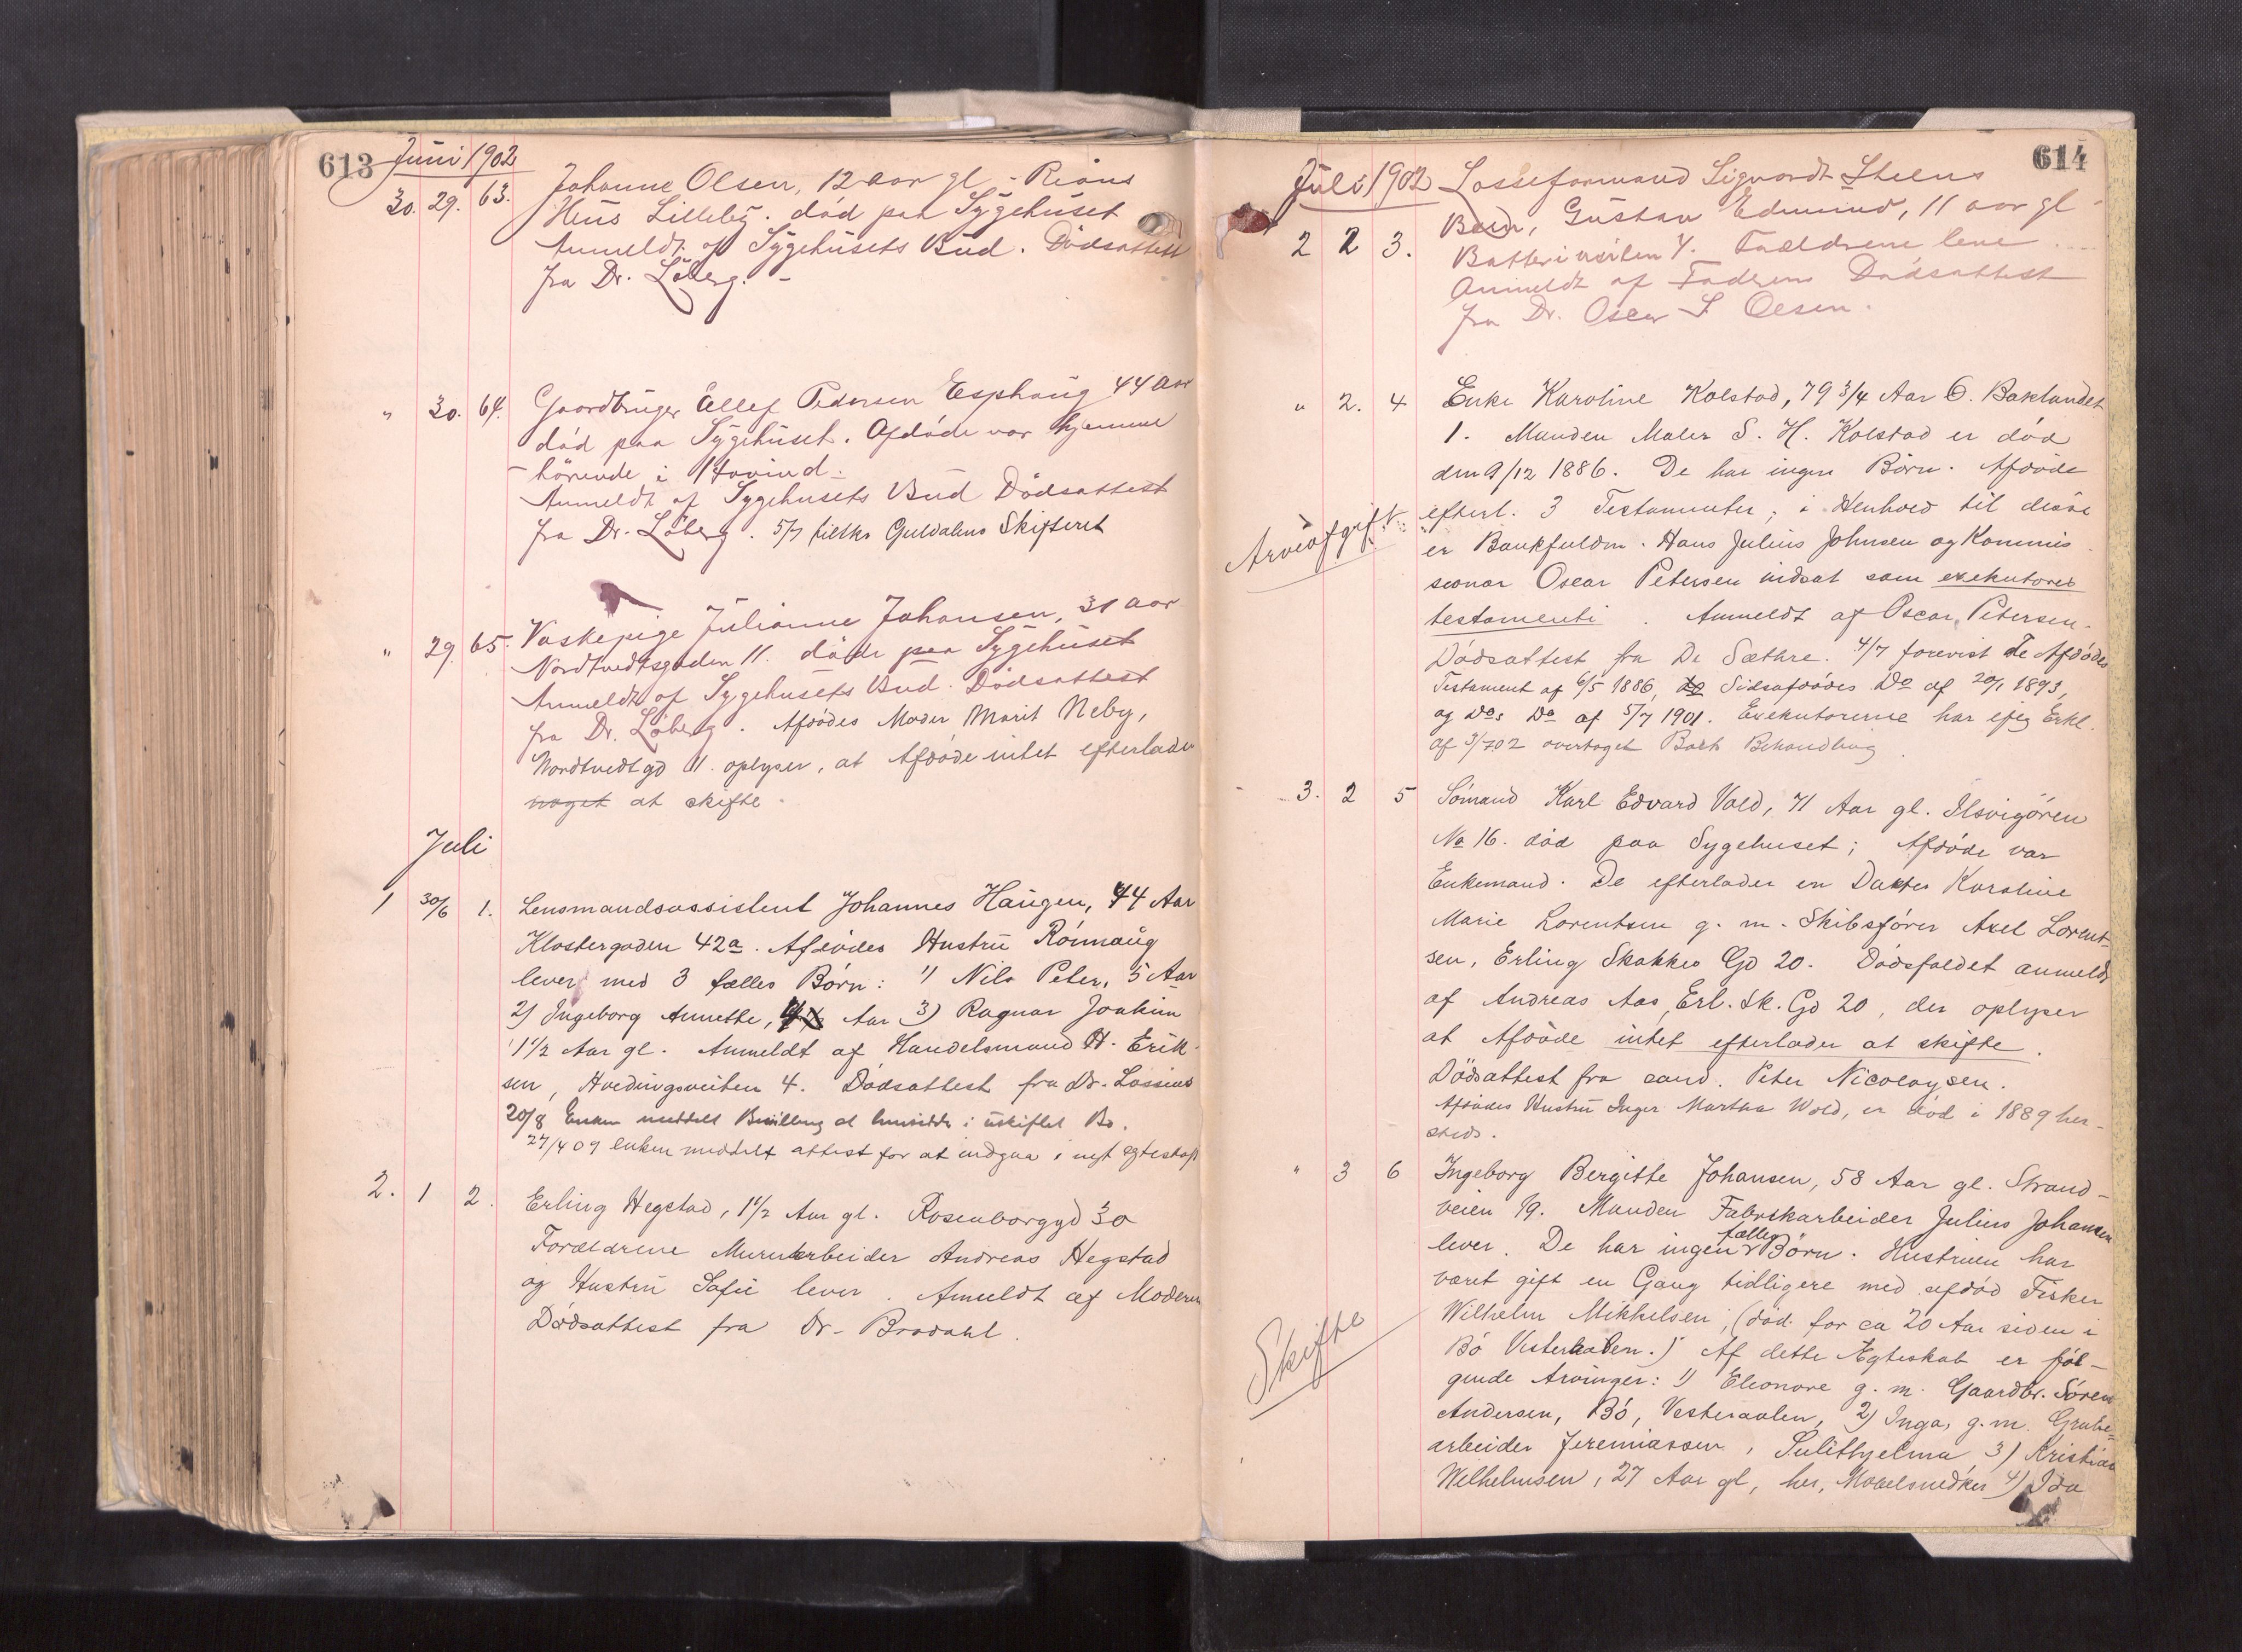 613 Juni 1902
30. 29. 63. Johanne Olsen, 12 aar gl - Rians
Hus Lilleby. död paa Sygehuset
Anmeldt af Sygehusets Bud. Dödsattest
fra Dr. Löberg. -
" 30. 64. Gaardbruger Ellef Pedersen Esphaug 44 Aar
död paa Sygehuset. Afdöde var hjemme
hörende i Hovind.
Anmeldt af Sygehusets Bud Dödsattest
fra Dr. Löberg. 5/7 tilskr Guldalens Skifteret
" 29. 65. Vaskepige Julianne Johansen, 31 aar
Nordtvedtsgaden 11. döde paa Sygehuset
Anmeldt af Sygehusets Bud. Dödsattest
fra Dr. Löberg. Afdödes Moder Marit Neby,
Nordtvedtgd 11. oplyser, at Afdöde intet efterlader
noget at skifte.
Juli
1 30/6 1. Lensmandsassistent Johannes Haugen, 44 Aar
Klostergaden 42a. Afdödes Hustru Rönnaug
lever med 3 fælles Börn: 1) Nils Peter, 5 Aar
2) Ingeborg Annette, Aar 3) Ragnar Joakim
1 1/2 Aar gl. Anmeldt af Handelsmand H. Erik-
sen, Hvedingsveiten 4. Dödsattest fra Dr. Lossius
20/8 Enken meddelt Bevilling at hensidde i uskiftet Bo.
27/4 09 enken meddelt attest for at indgaa i nyt egteskab
2. 1 2. Erling Hegstad, 1 1/2 Aar gl. Rosenborggd 30
Forældrene Murerarbeider Andreas Hegstad
og Hustru Sofie lever. Anmeldt af Moderen
Dödsattest fra Dr. Brodahl.
614
Juli 1902 Losseformand Sigvardt Steens
2 2 3. Barn, Gustav Edmund, 11 aar gl
Batteriveiten 4. Forældrene leve
Anmeldt af Faderen Dödsattest
fra Dr. Oscar S Olsen.
" 2. 4 Enke Karoline Kolstad, 79 3/4 Aar Ö. Baklandet
1. Manden Maler S. H. Kolstad er död
den 9/12 1886. De har ingen Börn. Afdöde
efterl. 3 Testamenter; i Henhold til disse
Arveafgift
er Bankfuldm. Hans Julius Johnsen og Kommis
sionær Oscar Petersen indsat som exekutores
testamenti. Anmeldt af Oscar Petersen.
Dödsattest fra Dr Sæthre. 4/7 forevist de Afdödes
Testament af 6/5 1886, Sidsafdödes Do af 20/1 1893,
og Dos Do af 5/7 1901. Exekutorerne har iflg Erkl.
af 3/7 02 overtaget Boets Behandling.
3. 2 5 Sömand Karl Edvard Vold, 71 Aar gl. Ilsvigören
No 16. död paa Sygehuset; Afdöde var
Enkemand. De efterlader en Datter Karoline
Marie Lorentsen g. m. Skibsförer Axel Lorent-
sen, Erling Skakkes Gd 20. Dödsfaldet anmeldt
af Andreas Aas, Erl. Sk. Gd 20, der oplyser
at Afdöde intet efterlader at skifte.
Dödsattest fra cand. Peter Nicolaysen.
Afdödes Hustru Inger Martha Wold, er död i 1889 her-
steds.
" 3 6 Ingeborg Bergitte Johansen, 58 Aar gl. Strand-
veien 19. Manden Fabrikarbeider Julius Johansen
lever. De har ingen fælles Börn. Hustruen har
været gift en Gang tidligere med afdöd Fisker
Skifte
Wilhelm Mikkelsen, (död for ca 20 Aar siden i
Bö Vesteraalen.) Af dette Ægteskab er föl-
gende Arvinger: 1) Eleonore g. m. Gaardbr. Sören
Andersen, Bö, Vesteraalen, 2) Inga, g. m. Grube-
arbeider Jeremiassen, Sulithjelma 3) Kristian
Wilhelmsen, 27 Aar gl, her, Möbelsnedker 4) Ida